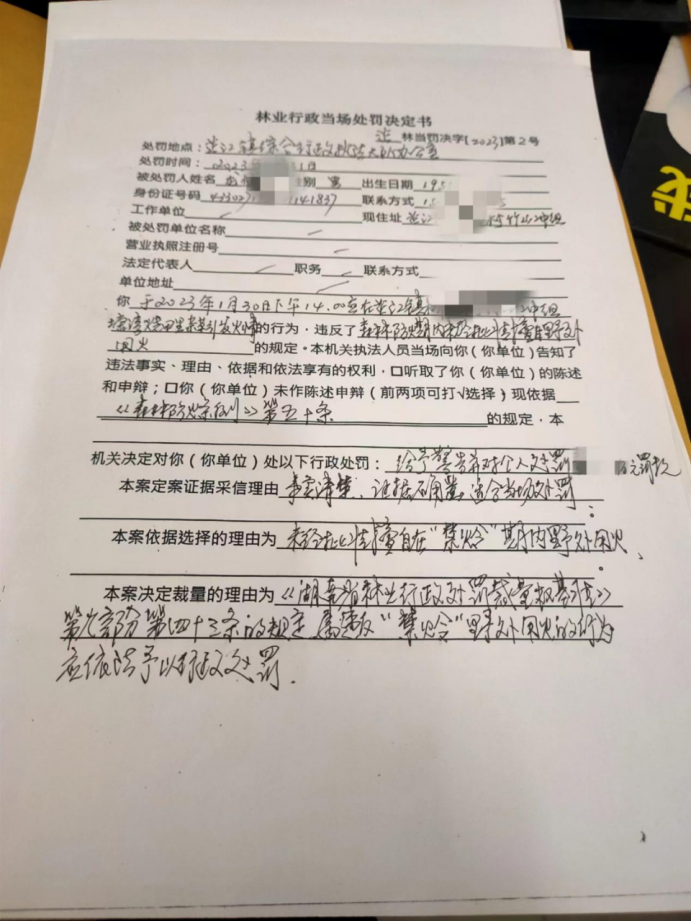 林业行政当场处罚决定书
林当罚决字[2023]第2号
处罚地点：江镇综合行政执法大队办公室
处罚时间：2023年 1日
被处罚人姓名 性别 男 出生日期 195
身份证号码 43302 141837 联系方式 1
工作单位 现住址 江 村竹山冲组
被处罚单位名称
营业执照注册号
法定代表人 职务 联系方式
单位地址
你 于2023年1月30日下午14.00应在 江镇 冲组
烧田 引发火情的行为，违反了森林防火期内未经批准擅自野外
用火 的规定。本机关执法人员当场向你（你单位）告知了
违法事实、理由、依据和依法享有的权利，口听取了你（你单位）的陈述
和申辩；口你（你单位）未作陈述申辩（前两项可打√选择）现依据
《森林防火条例》第五十条 的规定，本
机关决定对你（你单位）处以下行政处罚：给予警告并对个人处罚 元罚款
本案定案证据采信理由 事实清楚、证据确凿，适合当场处罚。
本案依据选择的理由为 未经批准擅自在“禁火令”期内野外用火、
本案决定裁量的理由为《湖南省林业行政处罚裁量权基准》
第 部分第四十三条的规定 属违反“禁火令”野外用火的行为
应依法予以行政处罚.